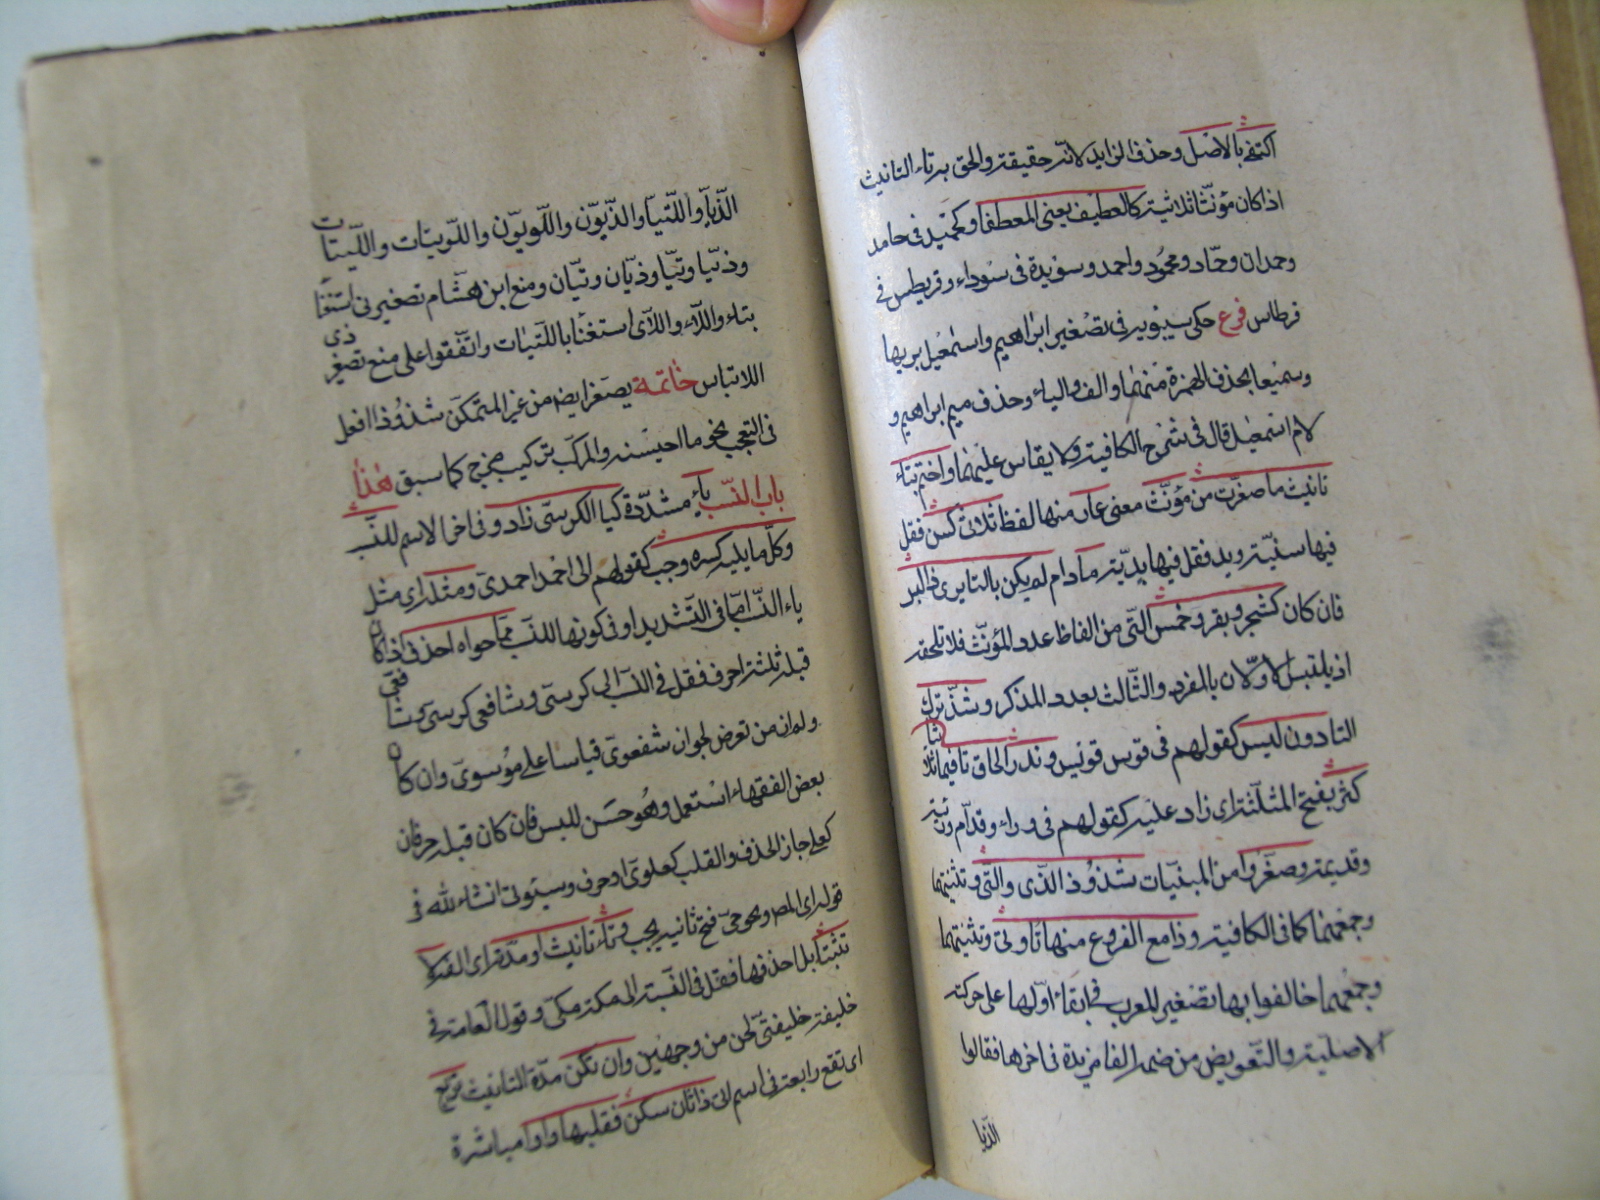 اكتفى بالاصل وحذف الزايد لانه حقيقة والحق به تاء التانيث
اذا كان مؤنثا ثلاثيته كالعطيف يعنى المعطفا وكحميد فى حامد
وحمدان وحماد ومحمود واحمد وسويدة فى سوداء وقريطس فى
قرطاس فرع حكى سيبويه فى تصغير ابراهيم واسمعيل بريها
وسميعا بحذف الهمزة منهما والف والياء وحذف ميم ابراهيم و
لام اسمعيل قال فى شرح الكافية ولا يقاس عليهما واختم بتاء
تانيث ما صغرت من مؤنث معنى عار منها لفظا ثلاثى كسن فقل
فيها سنينة ويد فقل فيها يدية ما دام لم يكن بالتا يرى ذا لبس
فان كان كشجر وبقر وخمس التى من الفاظ عدد المؤنث فلا تلحقه
اذ يلتبس الاولان بالمفرد والثالث بعدد المذكر وشذ ترك
التا دون لبس كقولهم فى قوس قويس وندر الحاق تا فيما ثلاثيا
كثر بفتح المثلثة اى زاد عليه كقولهم فى وراء وقدام وريئة
وقديمة وصغروا من المبنيات شذوذ الذى والتى وتثنيتهما
وجمعهما كما فى الكافية وذا مع الفروع منها تا وتى وتثنيتهما
وجمعهما خالفوا بها تصغير المعرب فى ابقاء اولها على حركته
الاصلية والتعويض من ضمه الفا مزيدة فى اخرها فقالوا
الذيا
الذيا واللتيا والذيون واللويون واللويتات واللتيتات
وذيا وتيا وذيان وتيان ومنع ابن هشام تصغير تى استغناء
بتاء واللاء واللاى استغنا باللتيات واتفقوا على منع تصغير ذى
للالتباس خاتمة يصغر ايضا من غير المتمكن شذوذا افعل
فى التعجب نحو ما احيسنه والمركب تركيب مزج كما سبق هذا
باب النسب ياء مشددة كيا الكرسى زادو فى اخر الاسم للنسب
وكل ما يليه كسره وجب كقولهم الى احمد احمدى ومثله اى مثل
ياء النسب اما فى التشديد او فى كونها للنسب مما حواه احذف اذا كان
قبله ثلثة احرف فقل فى النسب الى كرسى وشافعى كرسى وشافعى
ولمن تعرض لجوان شفعوى قياسا على موسوى وان كان
بعض الفقهاء استعمل وهو حسن للبس فان كان قبله حرفان
كعلى جاز الحذف والقلب كعلوى او حرف وسيوتى انشاء لله فى
قوله اى المص ونحو حى فتح ثانيه يجب وتاء تانيث او مدته اى الفه لا
تثبتا بل احذفها فقل فى النسبة الى مكة مكى وقول العامة فى
خليفة خليفتى لحن من وجهين وان تكن مدة التانيث تربع
اى تقع رابعة فى اسم اتى ذا ثان سكن فقلبها واوا مباشرة